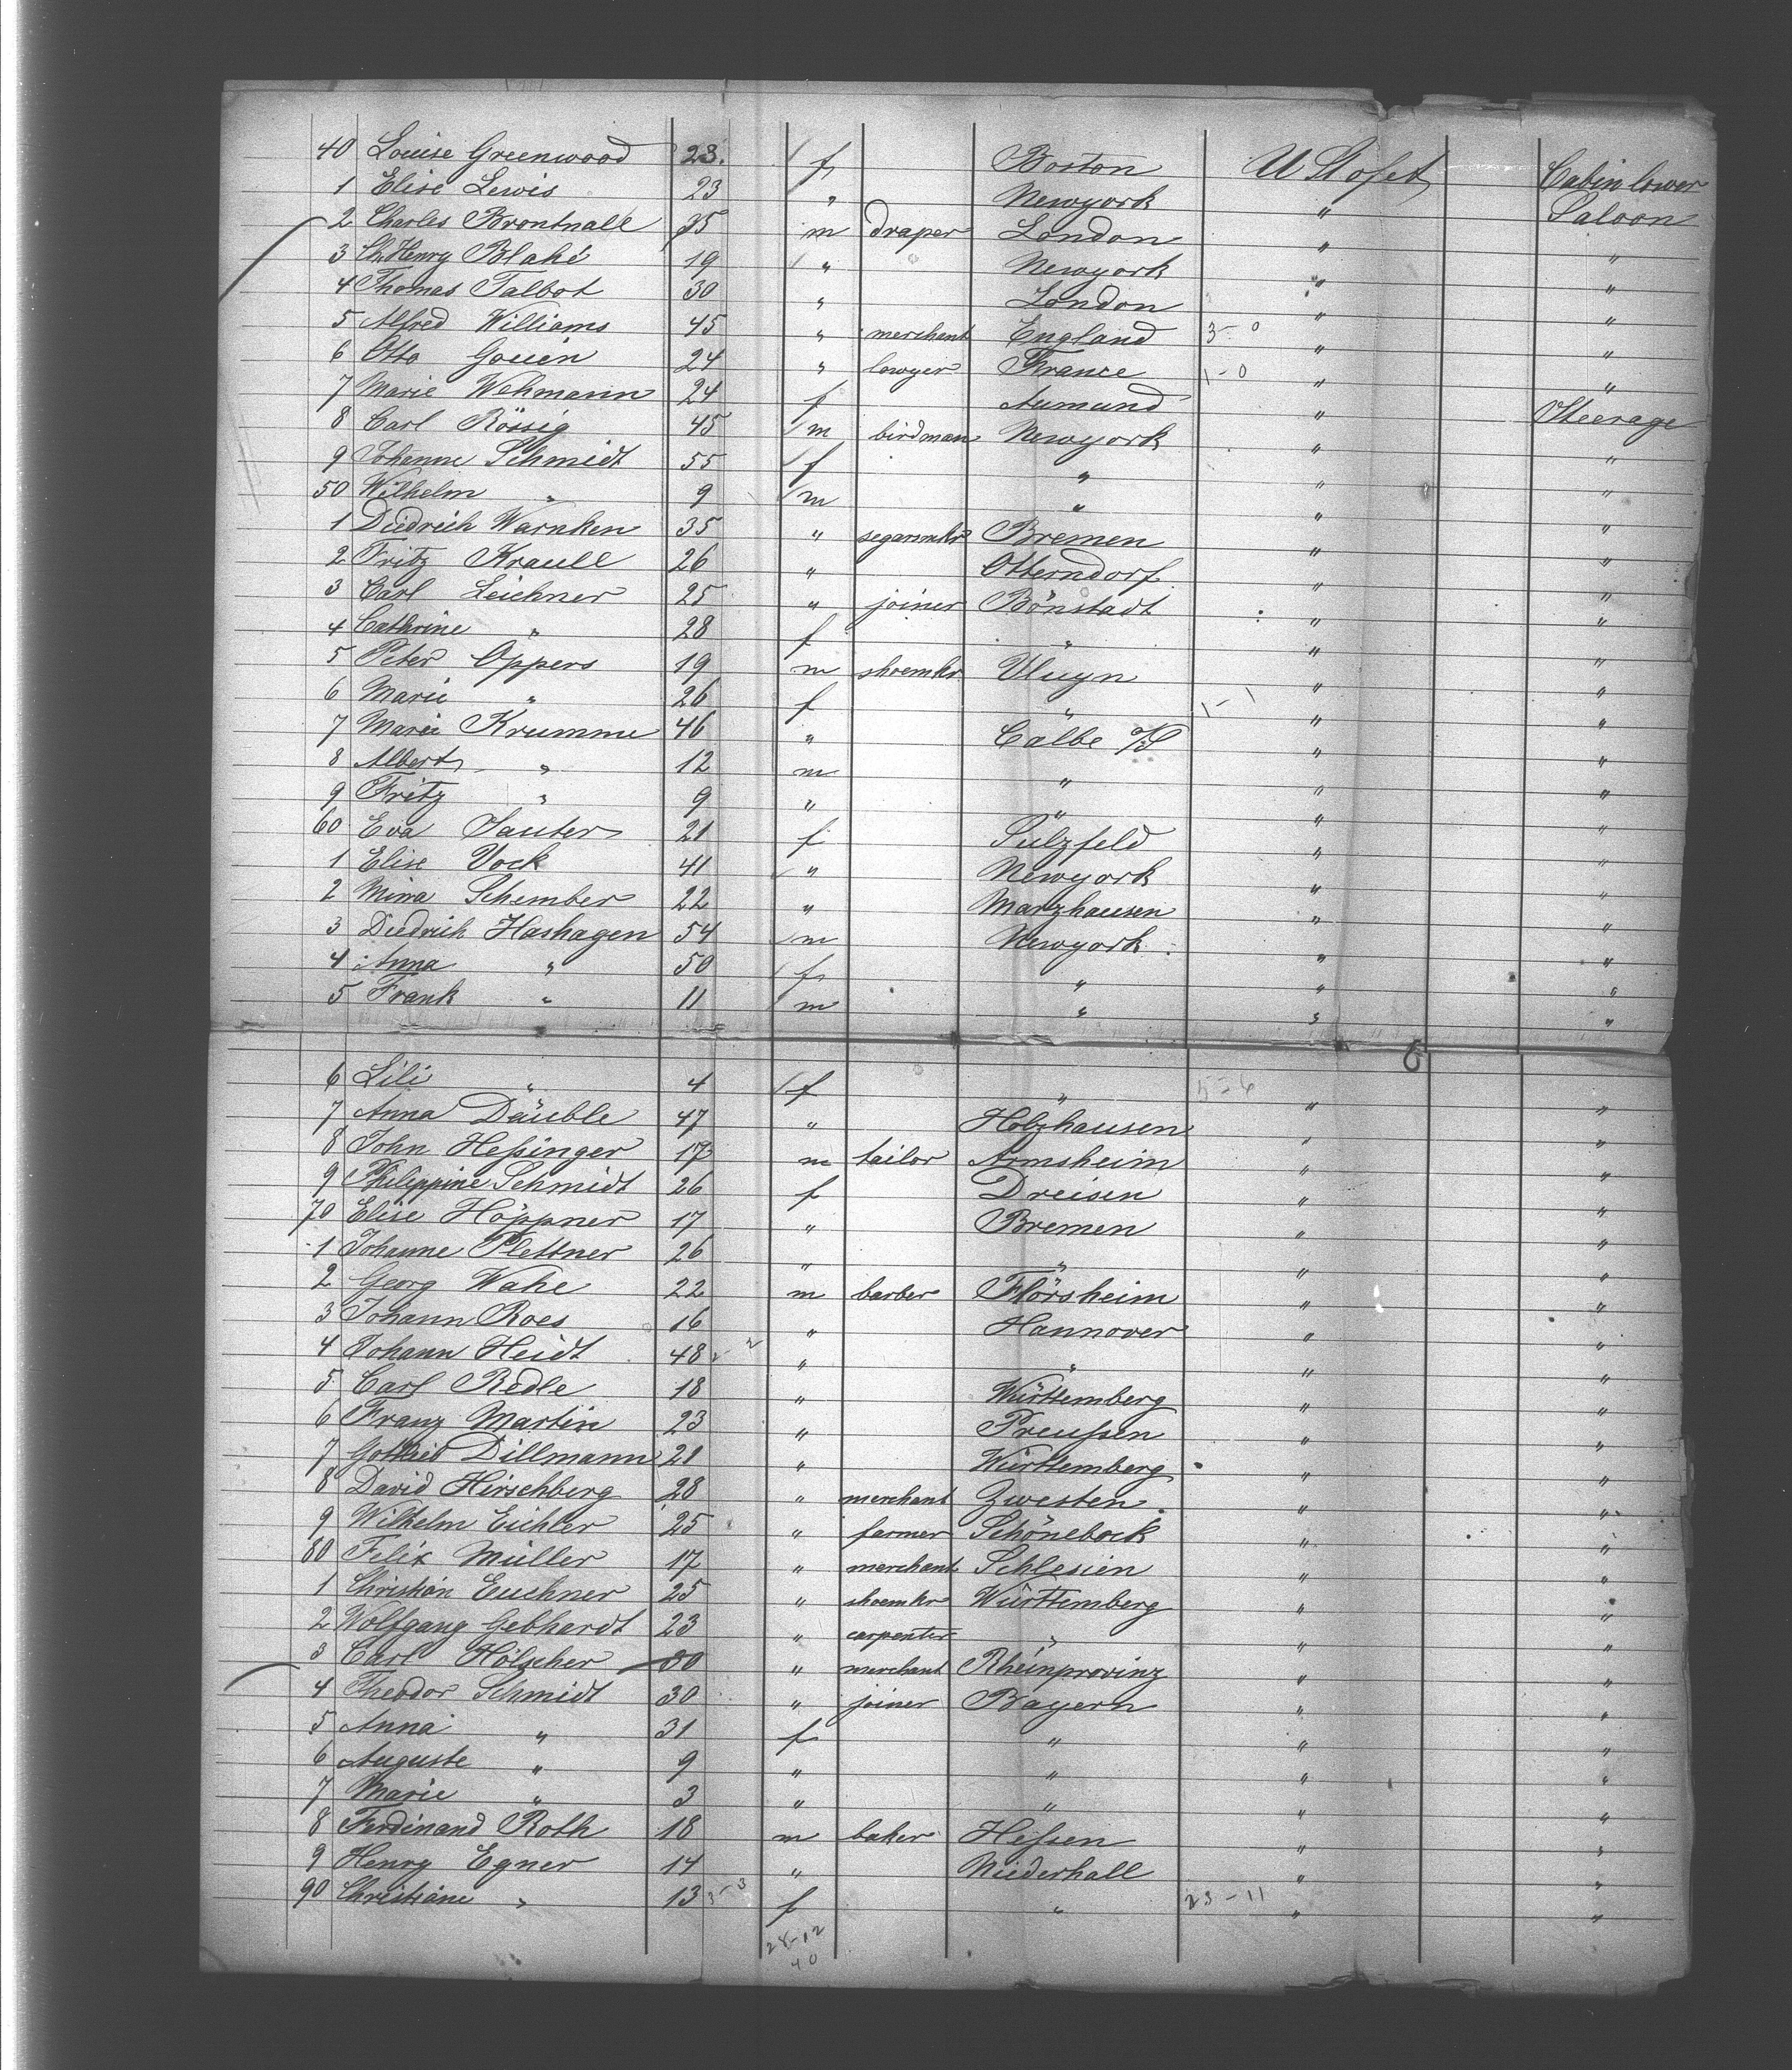 40 Louise Greenwood 23. f Boston U St of A Cabin lower
1 Elise Lewis 23 " Newyork " Saloon
2 Charles Brontnall 35 m draper London " "
3 Ch. Henry Blake 19 " Newyork " "
4 Thomas Talbot 30 " London " "
5 Alfred Williams 45 " merchant England 3-0 " "
6 Otto 24 " lawyer France 1-0 " "
7 Marie Wehmann 24 f Aumund " Steerage
8 Carl Rössig 45 m birdman Newyork " "
9 Johanne Schmidt 55 f " " "
50 Wilhelm " 9 m " " "
1 Diedrich Warnken 35 " segarmkr Bremen " "
2 Fritz Kraull 26 " Otterndorf " "
3 Carl Leichner 25 " joiner Bönstadt " "
4 Cathrine " 28 f " " "
5 Peter Oppers 19 m shoemkr Vluyn " "
6 Marie " 26 f " 1-1 " "
7 Marie Krumme 46 " Calbe a/S " "
8 Albert " 12 m " " "
9 Fritz " 9 " " " "
60 Eva Sauter 21 f Sulzfeld " "
1 Elise Vock 41 " Newyork " "
2 Minna Schember 22 " Marzhausen " "
3 Diedrich Hashagen 54 m Newyork " "
4 Anna " 50 f " " "
5 Frank " 11 m " " "
6 Lili " 4 f " 5-6 " "
7 Anna Däuble 47 " Holzhausen " "
8 John Heßinger 17 m tailor Armsheim " "
9 Philippine Schmidt 26 f Dreisen " "
70 Elise Höppner 17 " Bremen " "
1 Johanne Plettner 26 " " " "
2 Georg Wahe 22 m barber Flörsheim " "
3 Johann Roes 16 " Hannover " "
4 Johann Heidt 48 2-2 " " " "
5 Carl Redle 18 " Württemberg " "
6 Franz Martin 23 " Preußen " "
7 Gottlieb Dillmann 21 " Württemberg " "
8 David Hirschberg 28 " merchant Zwesten " "
9 Wilhelm Eichler 25 " farmer Schönebeck " "
80 Felix Müller 17 " merchant Schlesien " "
1 Christian Euchner 25 " shoemkr Württemberg " "
2 Wolfgang Gebhardt 23 " carpenter " " "
3 Carl Hölscher 30 " merchant Rheinprovinz " "
4 Theodor Schmidt 30 " joiner Bayern " "
5 Anna " 31 f " " "
6 Auguste " 9 " " " "
7 Marie " 3 " " " "
8 Ferdinand Roth 18 m baker Heßen " "
9 Henry Egner 14 " Niederhall " "
90 Christiane " 13 3-3 f " 23-11 " "
28-12
40